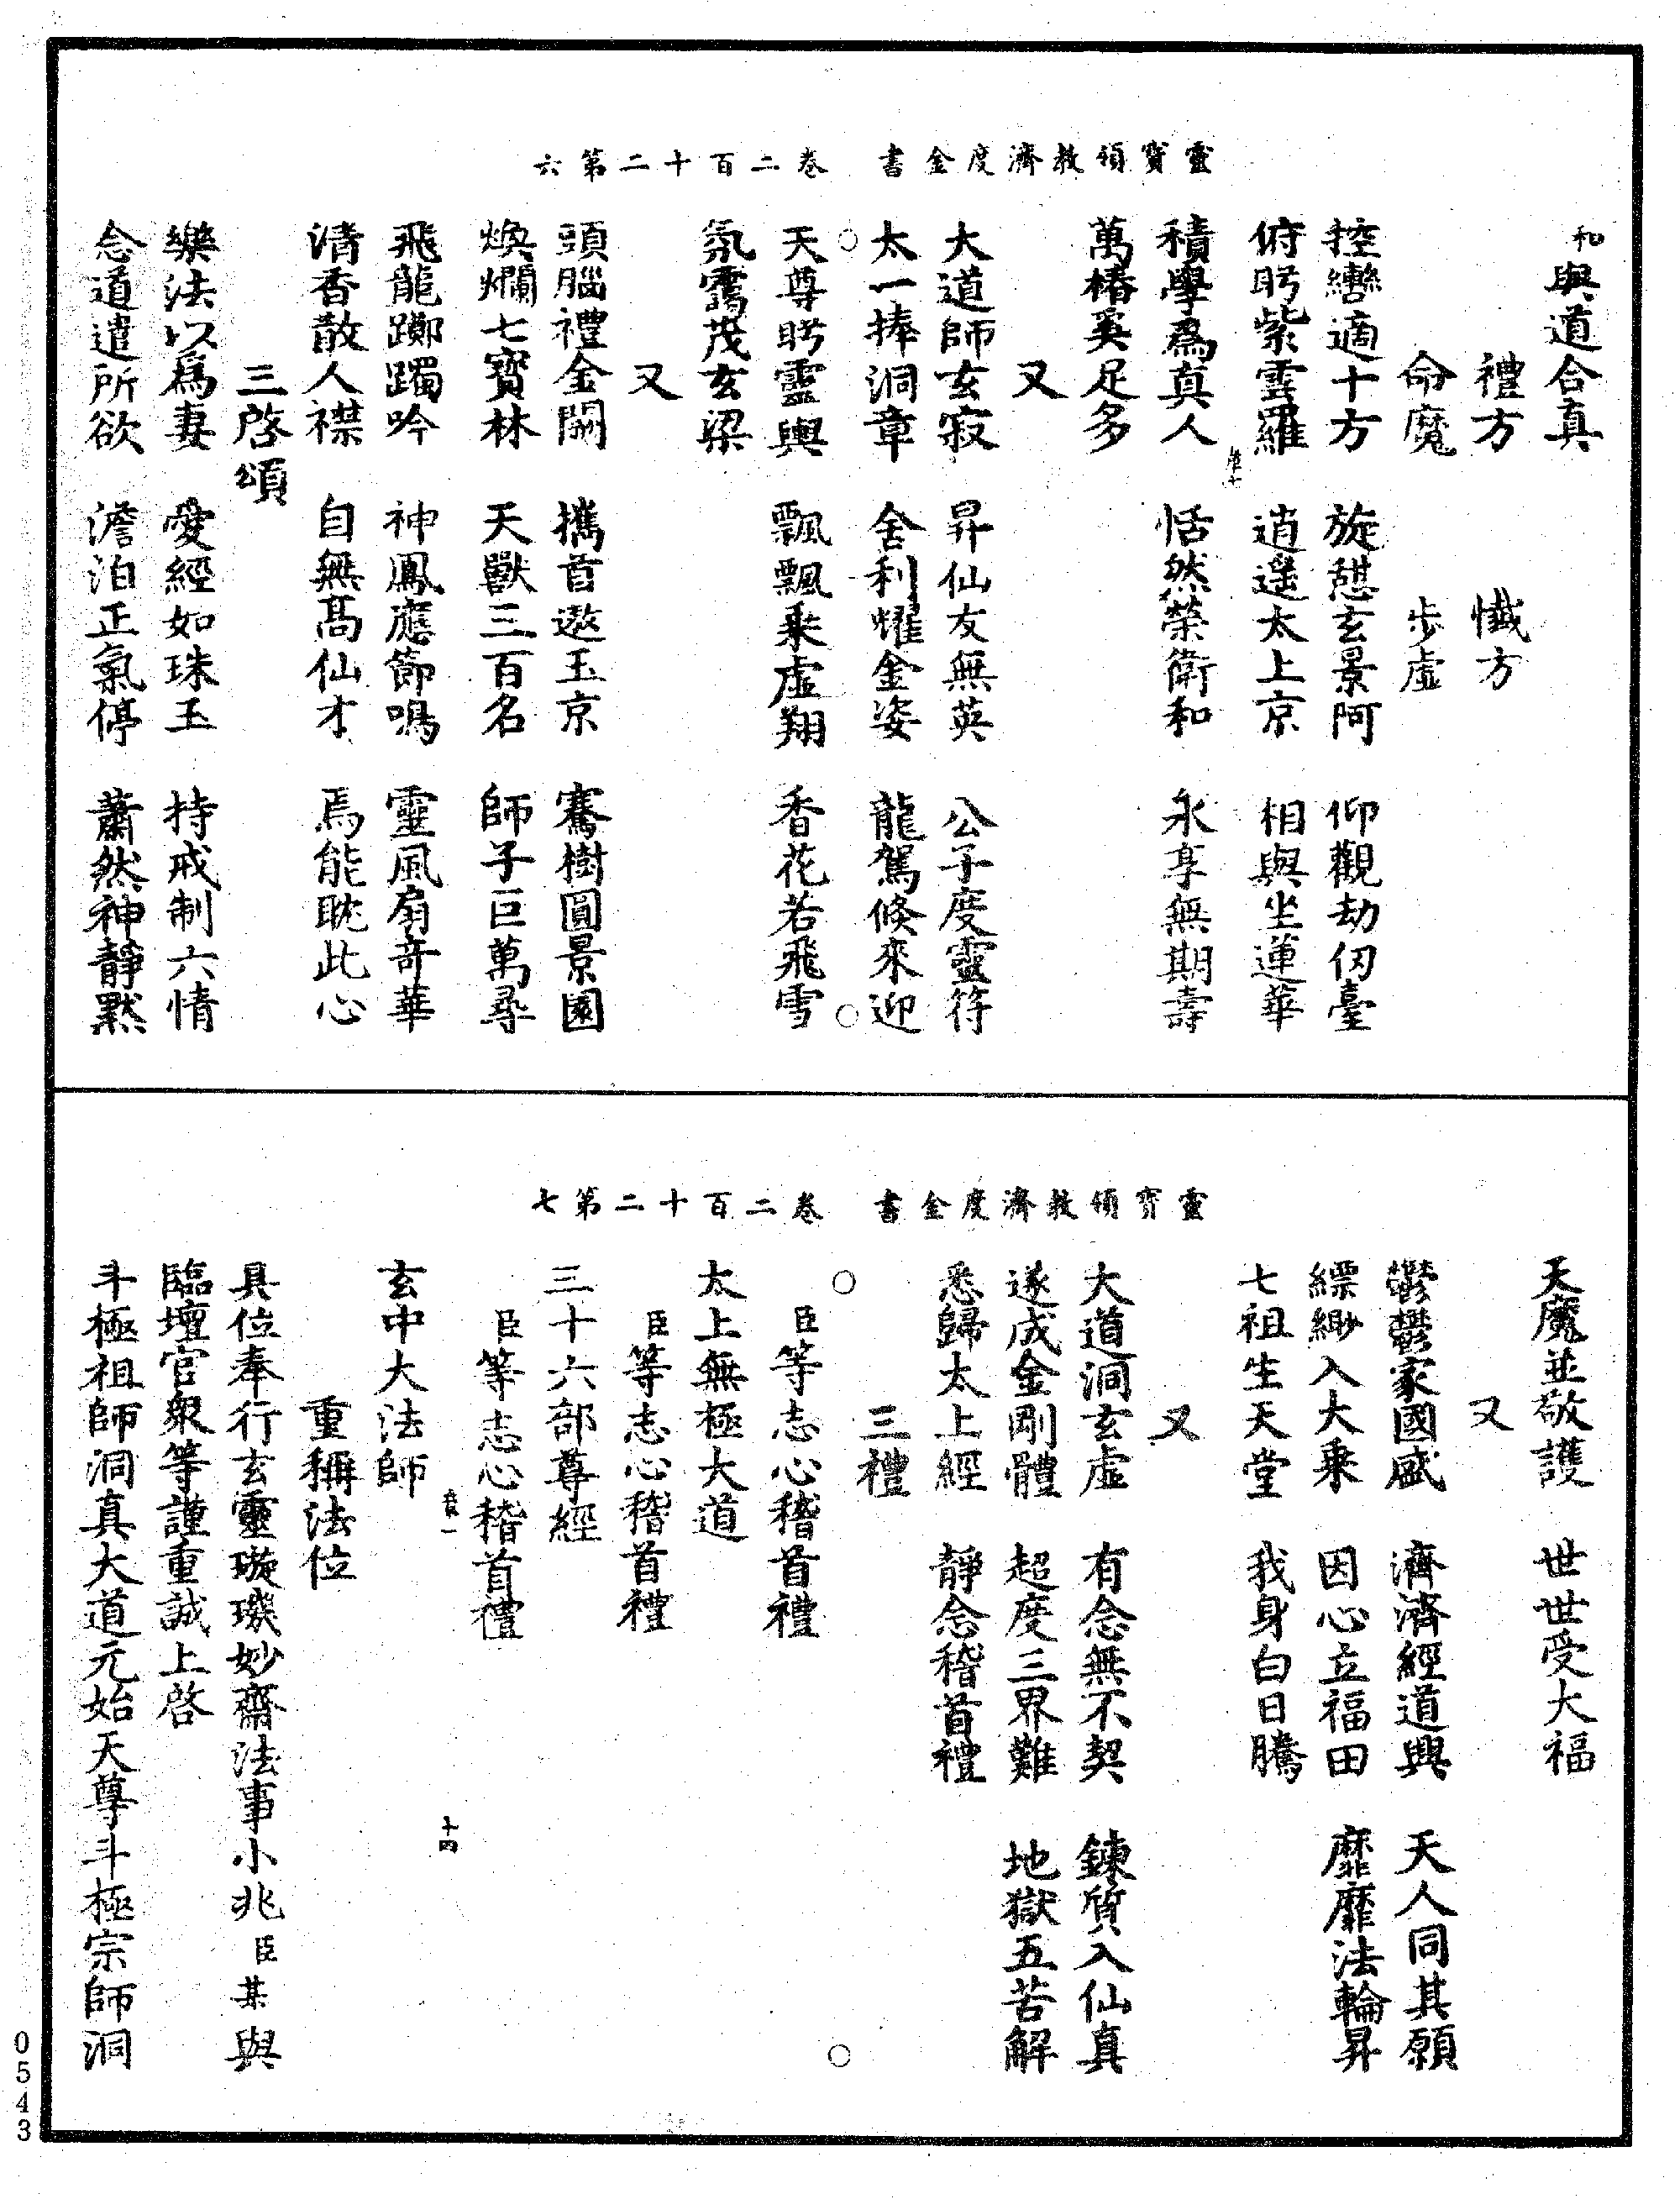 靈寶領教濟度金書　卷二百二十第六
和與道合真
禮方　懺方
命魔　步虛
控轡適十方　旋憩玄景阿　仰觀劫仞臺
俯眄紫雲羅　逍遙太上京　相與坐蓮華
積學為真人　恬然榮衛和　永享無期壽
萬椿奚足多
又
大道師玄寂　昇仙友無英　公子度靈符
太一捧洞章　舍利耀金姿　龍駕倏來迎
天尊眄靈輿　飄飄乘虛翔　香花若飛雪
氛靄茂玄梁
又
頭腦禮金闕　攜首遨玉京　騫樹圓景園
煥爛七寶林　天獸三百名　師子巨萬尋
飛龍躑躅吟　神鳳應節鳴　靈風扇奇華
清香散人襟　自無高仙才　焉能耽此心
三啓頌
樂法以為妻　愛經如珠玉　持戒制六情
念道遣所欲　澹泊正氣停　蕭然神靜默
靈寶領教濟度金書　卷二百二十第七
天魔並敬護　世世受大福
又
鬱鬱家國盛　濟濟經道興　天人同其願
縹緲入大乘　因心立福田　靡靡法輪昇
七祖生天堂　我身白日騰
又
大道洞玄虛　有念無不契　鍊質入仙真
遂成金剛體　超度三界難　地獄五苦解
悉歸太上經　靜念稽首禮
三禮
臣等志心稽首禮
太上無極大道
臣等志心稽首禮
三十六部尊經
臣等志心稽首禮
十四
玄中大法師
重稱法位
具位奉行玄靈璇璣妙齋法事小兆臣某與
臨壇官衆等謹重誠上啓
斗極祖師洞真大道元始天尊斗極宗師洞
0543